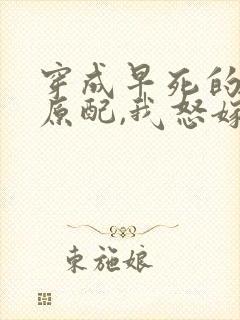 穿成早死的
原配,我怒嫁
东施娘